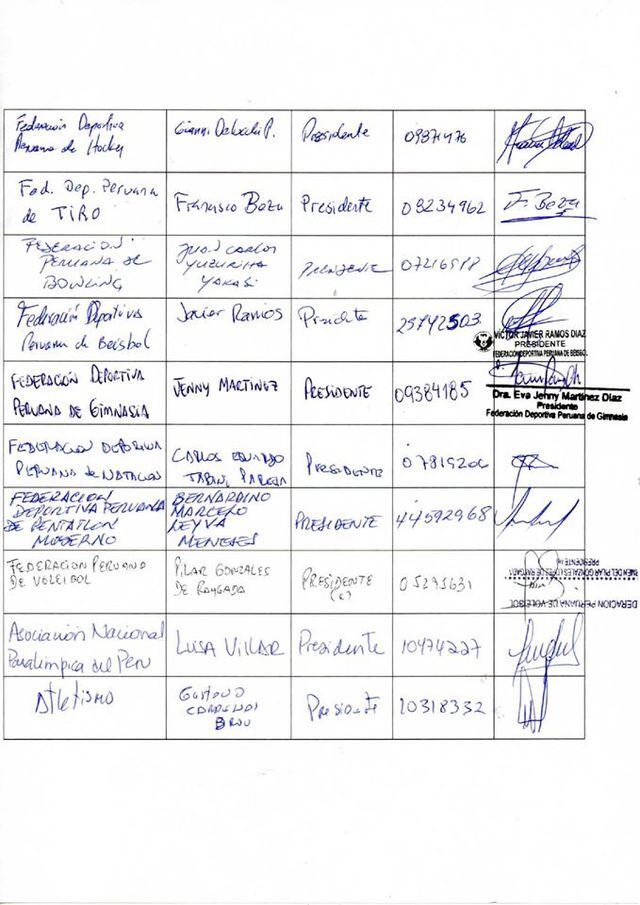 Federación Deportiva
Peruana de Hockey
Gianni
Presidente
Fed. Dep. Peruana
de TIRO
Francisco Boza
Presidente
03234962
F. Boza
FEDERACION
PERUANA DE
BOWLING
JUAN CARLOS
YUZURIHA
PRESIDENTE
Federación Deportiva
Peruana de Beisbol
Javier Ramos
Presidente
25742503
VÍCTOR JAVIER RAMOS DIAZ
PRESIDENTE
FEDERACION DEPORTIVA PERUANA DE BEISBOL
FEDERACIÓN DEPORTIVA
PERUANA DE GIMNASIA
JENNY MARTINEZ
PRESIDENTE
09384185
Dra. Eva Jenny Martinez Diaz
Presidente
Federación Deportiva Peruana de Gimnasia
FEDERACION DEPORTIVA
PERUANA de NATACION
CARLOS
PRESIDENTE
07819206
FEDERACION
DEPORTIVA PERUANA
DE PENTATLON
MODERNO
BERNARDINO
MARCELO
LEYVA
MENESES
PRESIDENTE
44592968
FEDERACION PERUANA
DE VOLEIBOL
PILAR GONZALES
DE RAYGADA
PRESIDENTE
(e)
05291631
PRESIDENTE
DERACION PERUANA DE VOLEIBOL
Asociación Nacional
Paralímpica del Perú
LUISA VILLAR
Presidente
10474227
Atletismo
Gustavo
Presidente
10318332